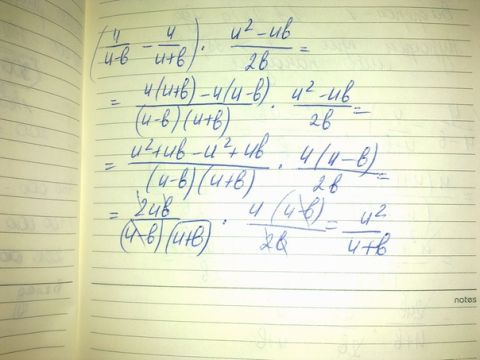 (u/(u-в) - u/(u+в)) · (u²-uв)/2в =
= (u(u+в)-u(u-в))/((u-в)(u+в)) · (u²-uв)/2в =
= (u²+uв-u²+uв)/((u-в)(u+в)) · u(u-в)/2в =
= 2uв/((u-в)(u+в)) · u(u-в)/2в = u²/(u+в)
notes